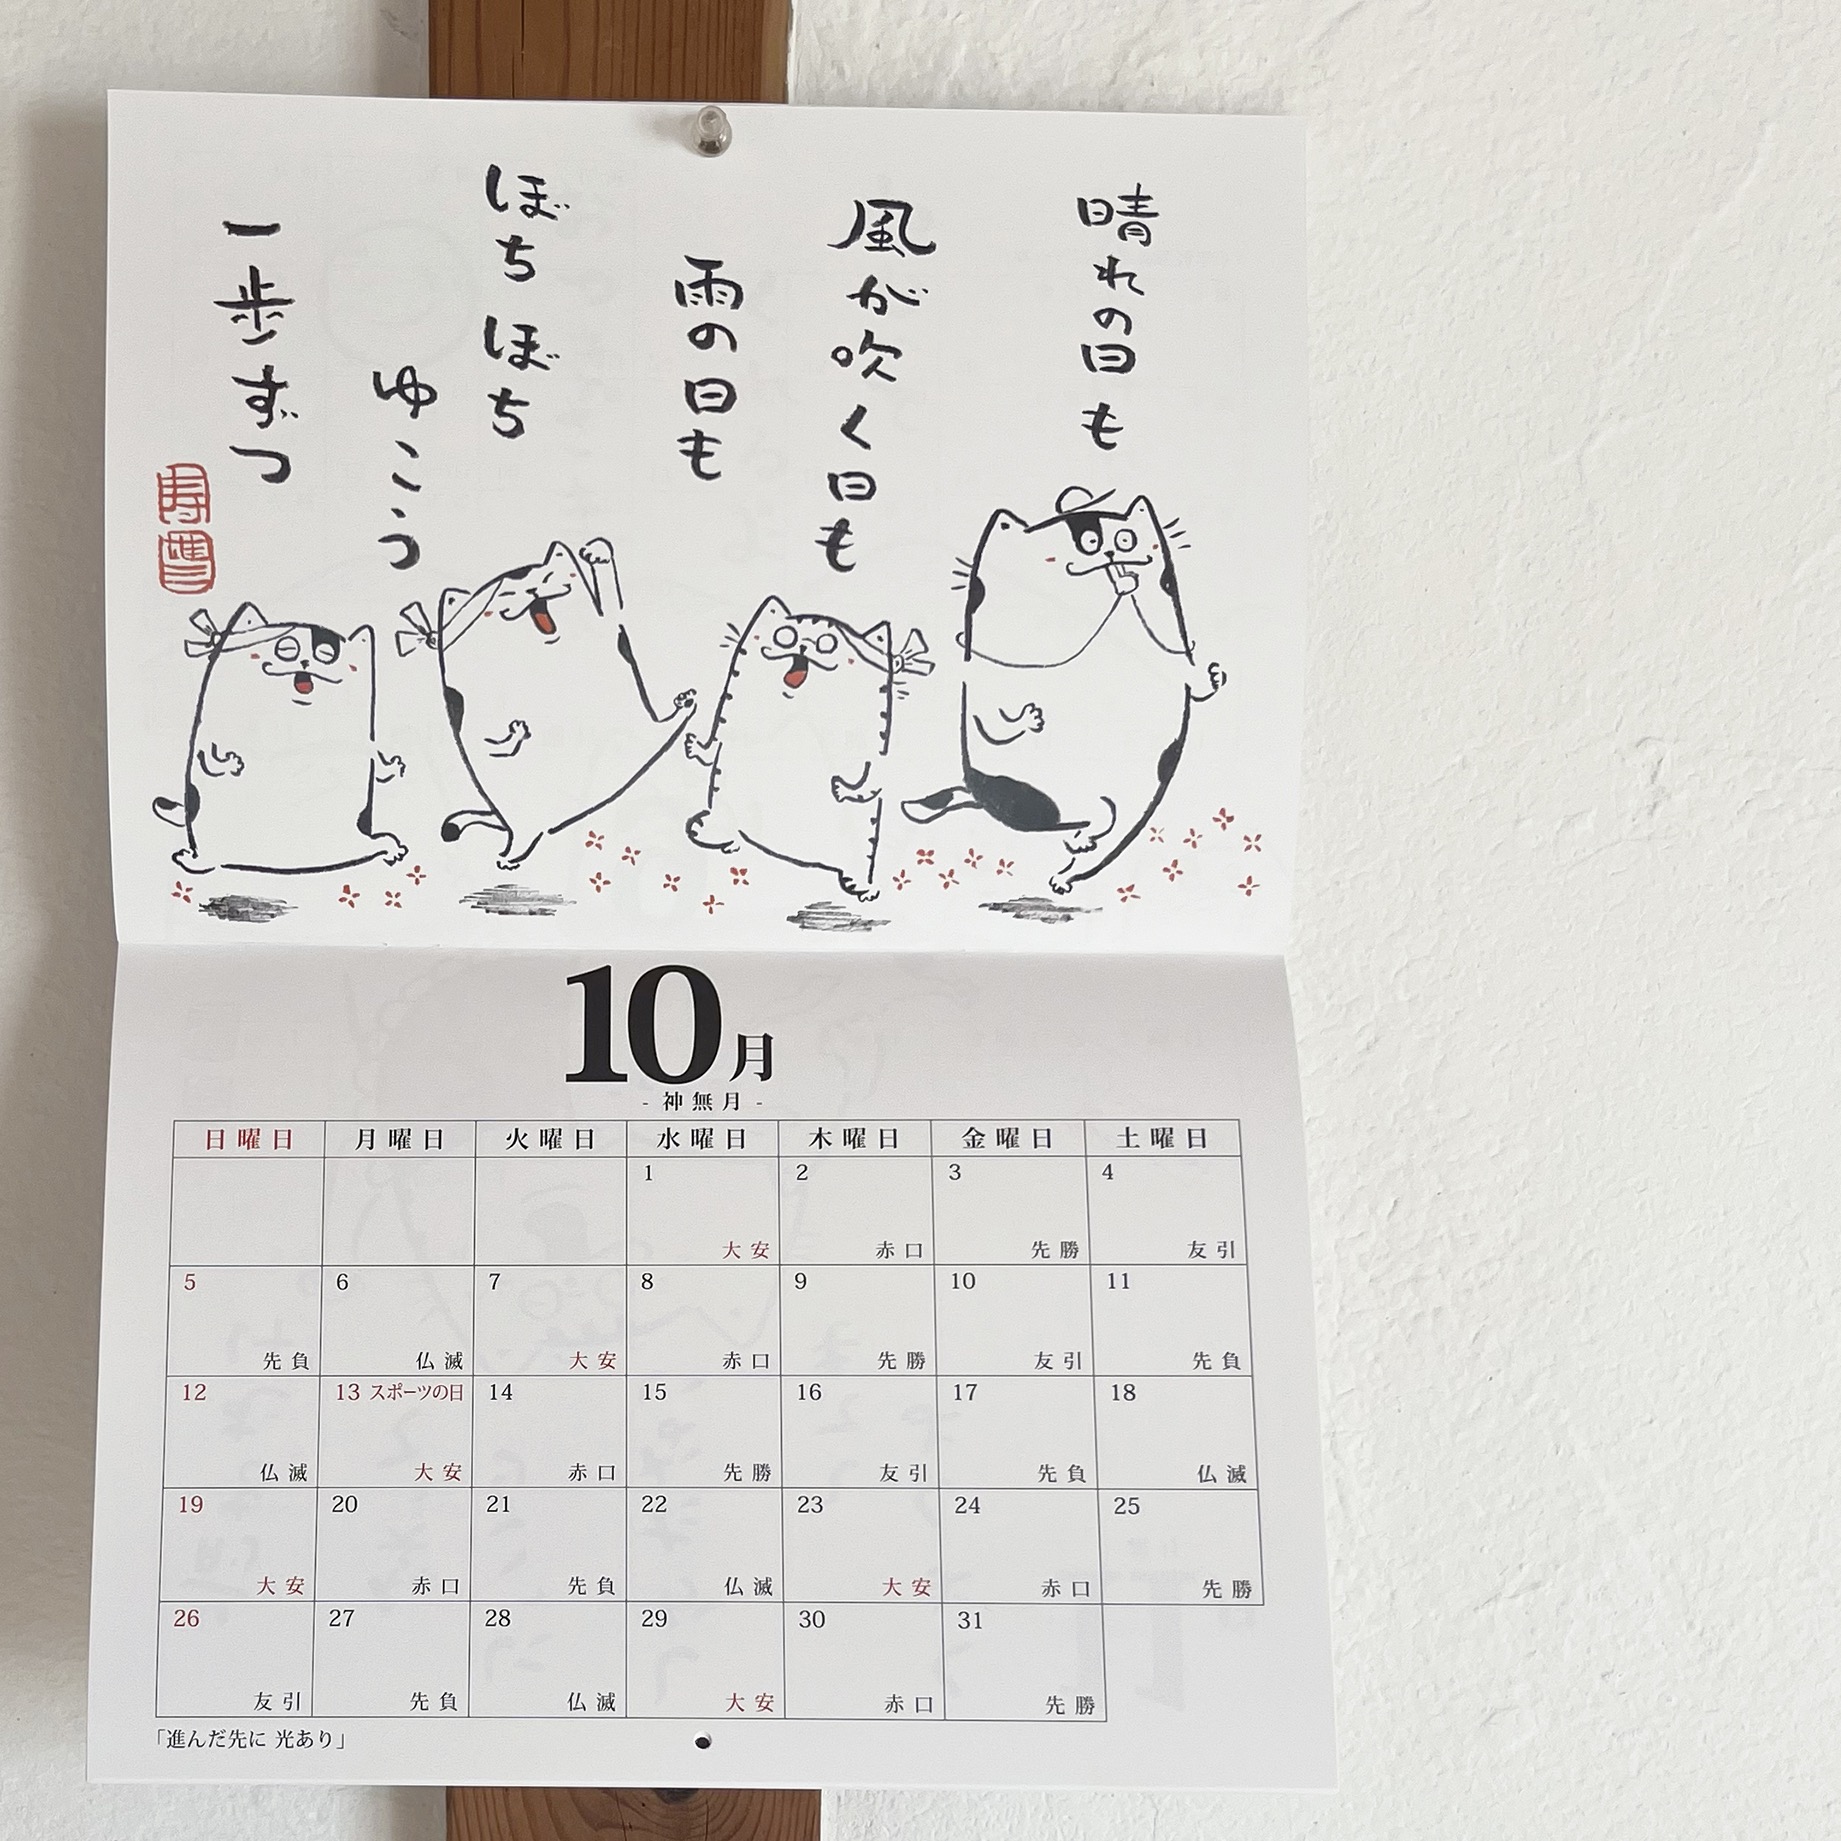 晴れの日も
風が吹く日も
雨の日も
ぼちぼち
ゆこう
一歩ずつ
10月
- 神無月 -
日曜日 月曜日 火曜日 水曜日 木曜日 金曜日 土曜日
1 2 3 4
大安 赤口 先勝 友引
5 6 7 8 9 10 11
先負 仏滅 大安 赤口 先勝 友引 先負
12 13 スポーツの日 14 15 16 17 18
仏滅 大安 赤口 先勝 友引 先負 仏滅
19 20 21 22 23 24 25
大安 赤口 先負 仏滅 大安 赤口 先勝
26 27 28 29 30 31
友引 先負 仏滅 大安 赤口 先勝
「進んだ先に 光あり」